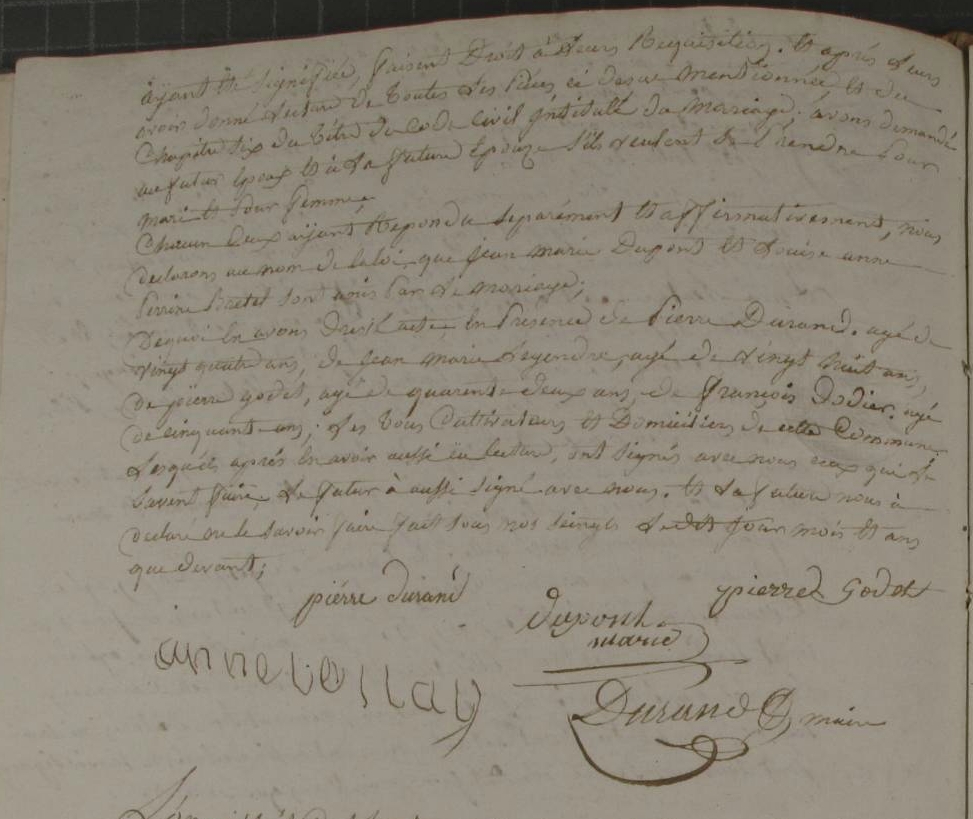 ayant été signifiée, faisant Droit à leurs Requisition. Et après Leurs
avoir donné Lecture de Toutes Les Pièces ci desus Mentionnée, et du
Chapitre Six du Titre du Code Civil intitulé du Mariage; avons demandé
au futur Epoux Et à La future Epouze s'ils veulent se Prendre Pour
Mari Et Pour femme;
Chacun Deux aijant Repondu Separément Et affirmativement, nous
declarons au nom de la loi, que Jean Marie Dupont Et Louise anne
Perrine sont unis Par Le Mariage;
Dequoi En avons Dressé acte, En Presence de Pierre Durand. agé de
vingt quatre ans, de Jean Marie Legendre, agé de vingt huit ans,
de pierre godet, agé de quarente deux ans, de François Dodier. agé
de cinquant ans; Les Tous Cultivateurs Et Domiciliers de cette Commune.
Lesquels après En avoir aussi eü lecture, ont signés avec nous ceux qui le
Savent faire, Le futur à aussi signé avec nous. Et La future nous à
declaré ne le Savoir faire fait Sous nos Seings Ledit Jour mois Et ans
que devant;
pierre durand
pierre Godet
dupont
marie
anne
Durand maire